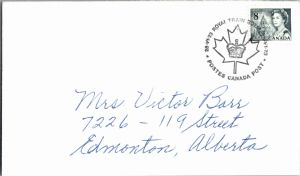 8
CANADA
ROYAL TRAIN
POSTES CANADA POST
Mrs Victor Barr
7226 - 119 Street
Edmonton, Alberta